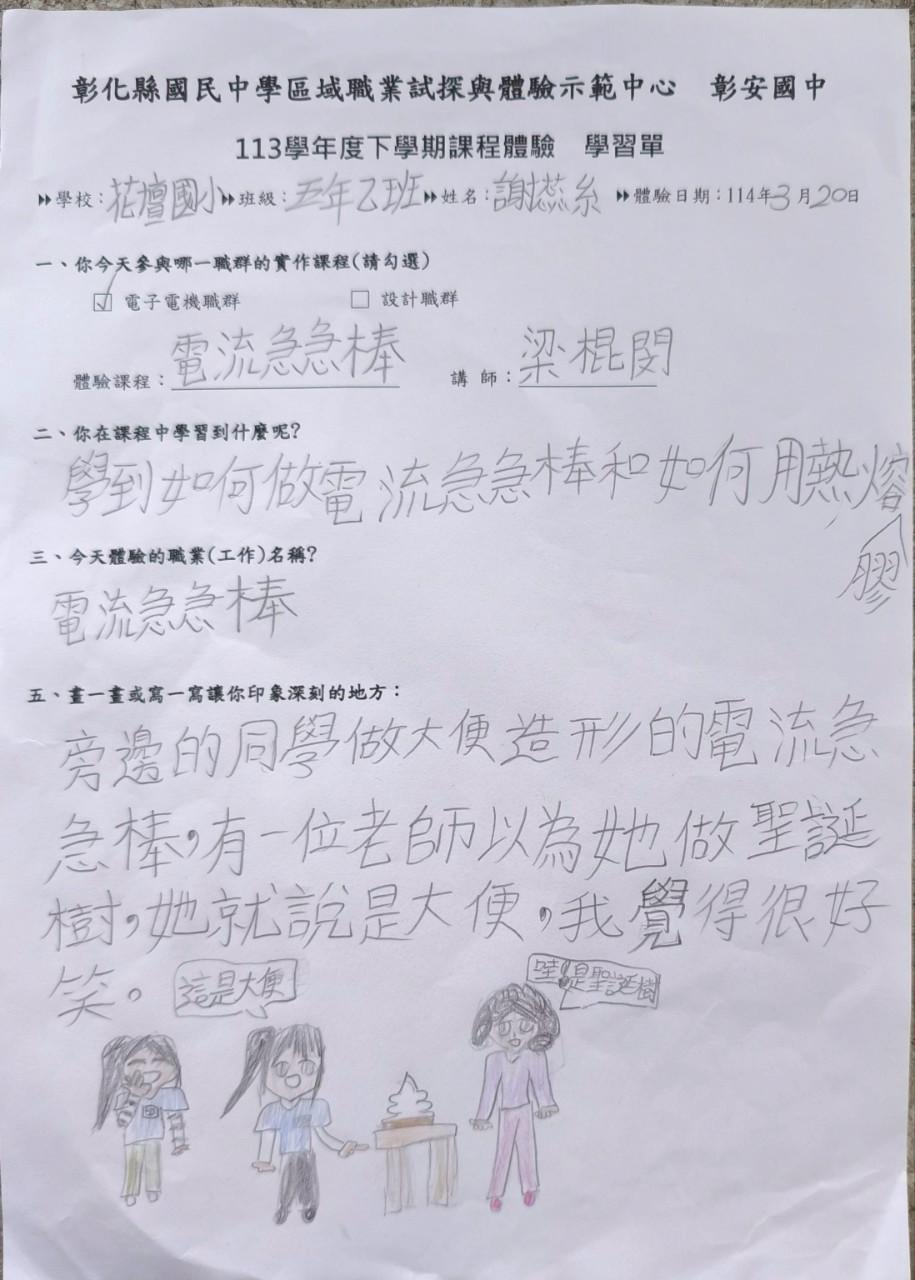 彰化縣國民中學區域職業試探與體驗示範中心 彰安國中
113學年度下學期課程體驗 學習單
學校：花壇國小 班級：五年乙班 姓名：謝蕊糸 體驗日期：114年3月20日
一、你今天參與哪一職群的實作課程(請勾選)
☑ 電子電機職群 ☐ 設計職群
體驗課程：電流急急棒 講師：梁棍閔
二、你在課程中學習到什麼呢?
學到如何做電流急急棒和如何用熱熔膠
三、今天體驗的職業(工作)名稱?
電流急急棒
五、畫一畫或寫一寫讓你印象深刻的地方：
旁邊的同學做大便造形的電流急
急棒，有一位老師以為她做聖誕
樹，她就說是大便，我覺得很好
笑。
這是大便
哇!是聖誕樹